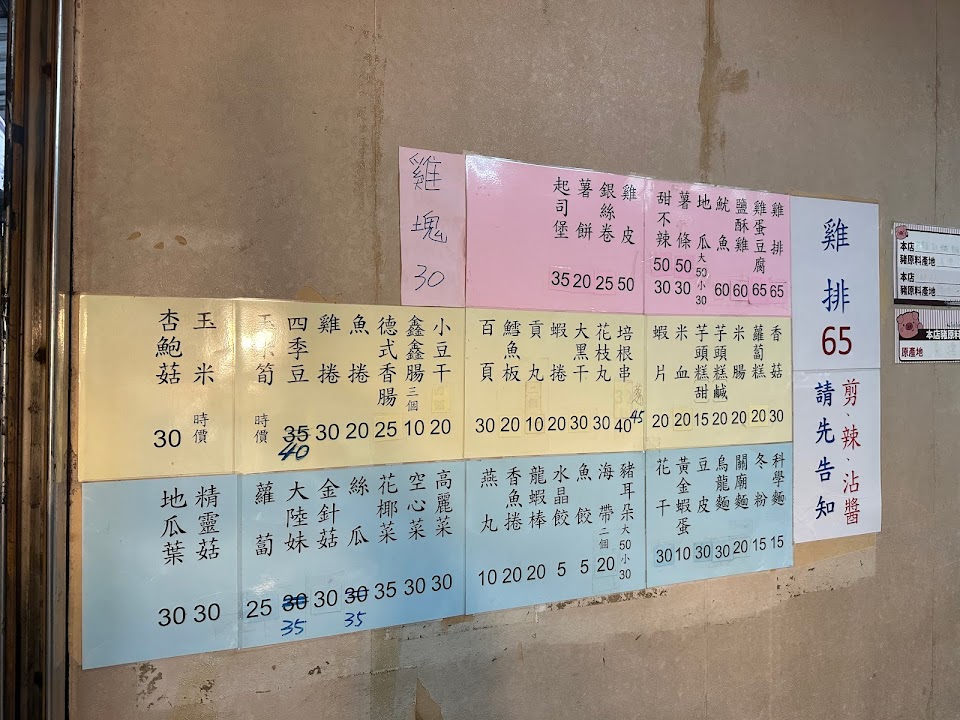 雞排
65
剪、辣、沾醬
請先告知
雞排 65
雞蛋豆腐 65
鹽酥雞 60
魷魚 60
地瓜 大50 小30
薯條 50 30
甜不辣 50 30
雞皮 50
銀絲卷 25
薯餅 20
起司堡 35
雞塊 30
香菇 30
蘿蔔糕 20
米腸 20
芋頭糕鹹 20
芋頭糕甜 15
米血 20
蝦片 20
培根串 40 45
花枝丸 30
大黑干 30
蝦捲 20
貢丸 10
鱈魚板 20
百頁 30
小豆干 20
鑫鑫腸三個 10
德式香腸 25
魚捲 20
雞捲 30
四季豆 35 40
玉米筍 時價
玉米 時價
杏鮑菇 30
科學麵 15
冬粉 15
關廟麵 20
烏龍麵 30
豆皮 30
黃金蝦蛋 10
花干 30
豬耳朵 大50 小30
海帶二個 20
魚餃 5
水晶餃 5
龍蝦棒 20
香魚捲 20
燕丸 10
高麗菜 30
空心菜 30
花椰菜 35
絲瓜 30 35
金針菇 30
大陸妹 30 35
蘿蔔 25
精靈菇 30
地瓜葉 30
本店
豬原料產地
本店
豬原料產地
本店豬原料
原產地